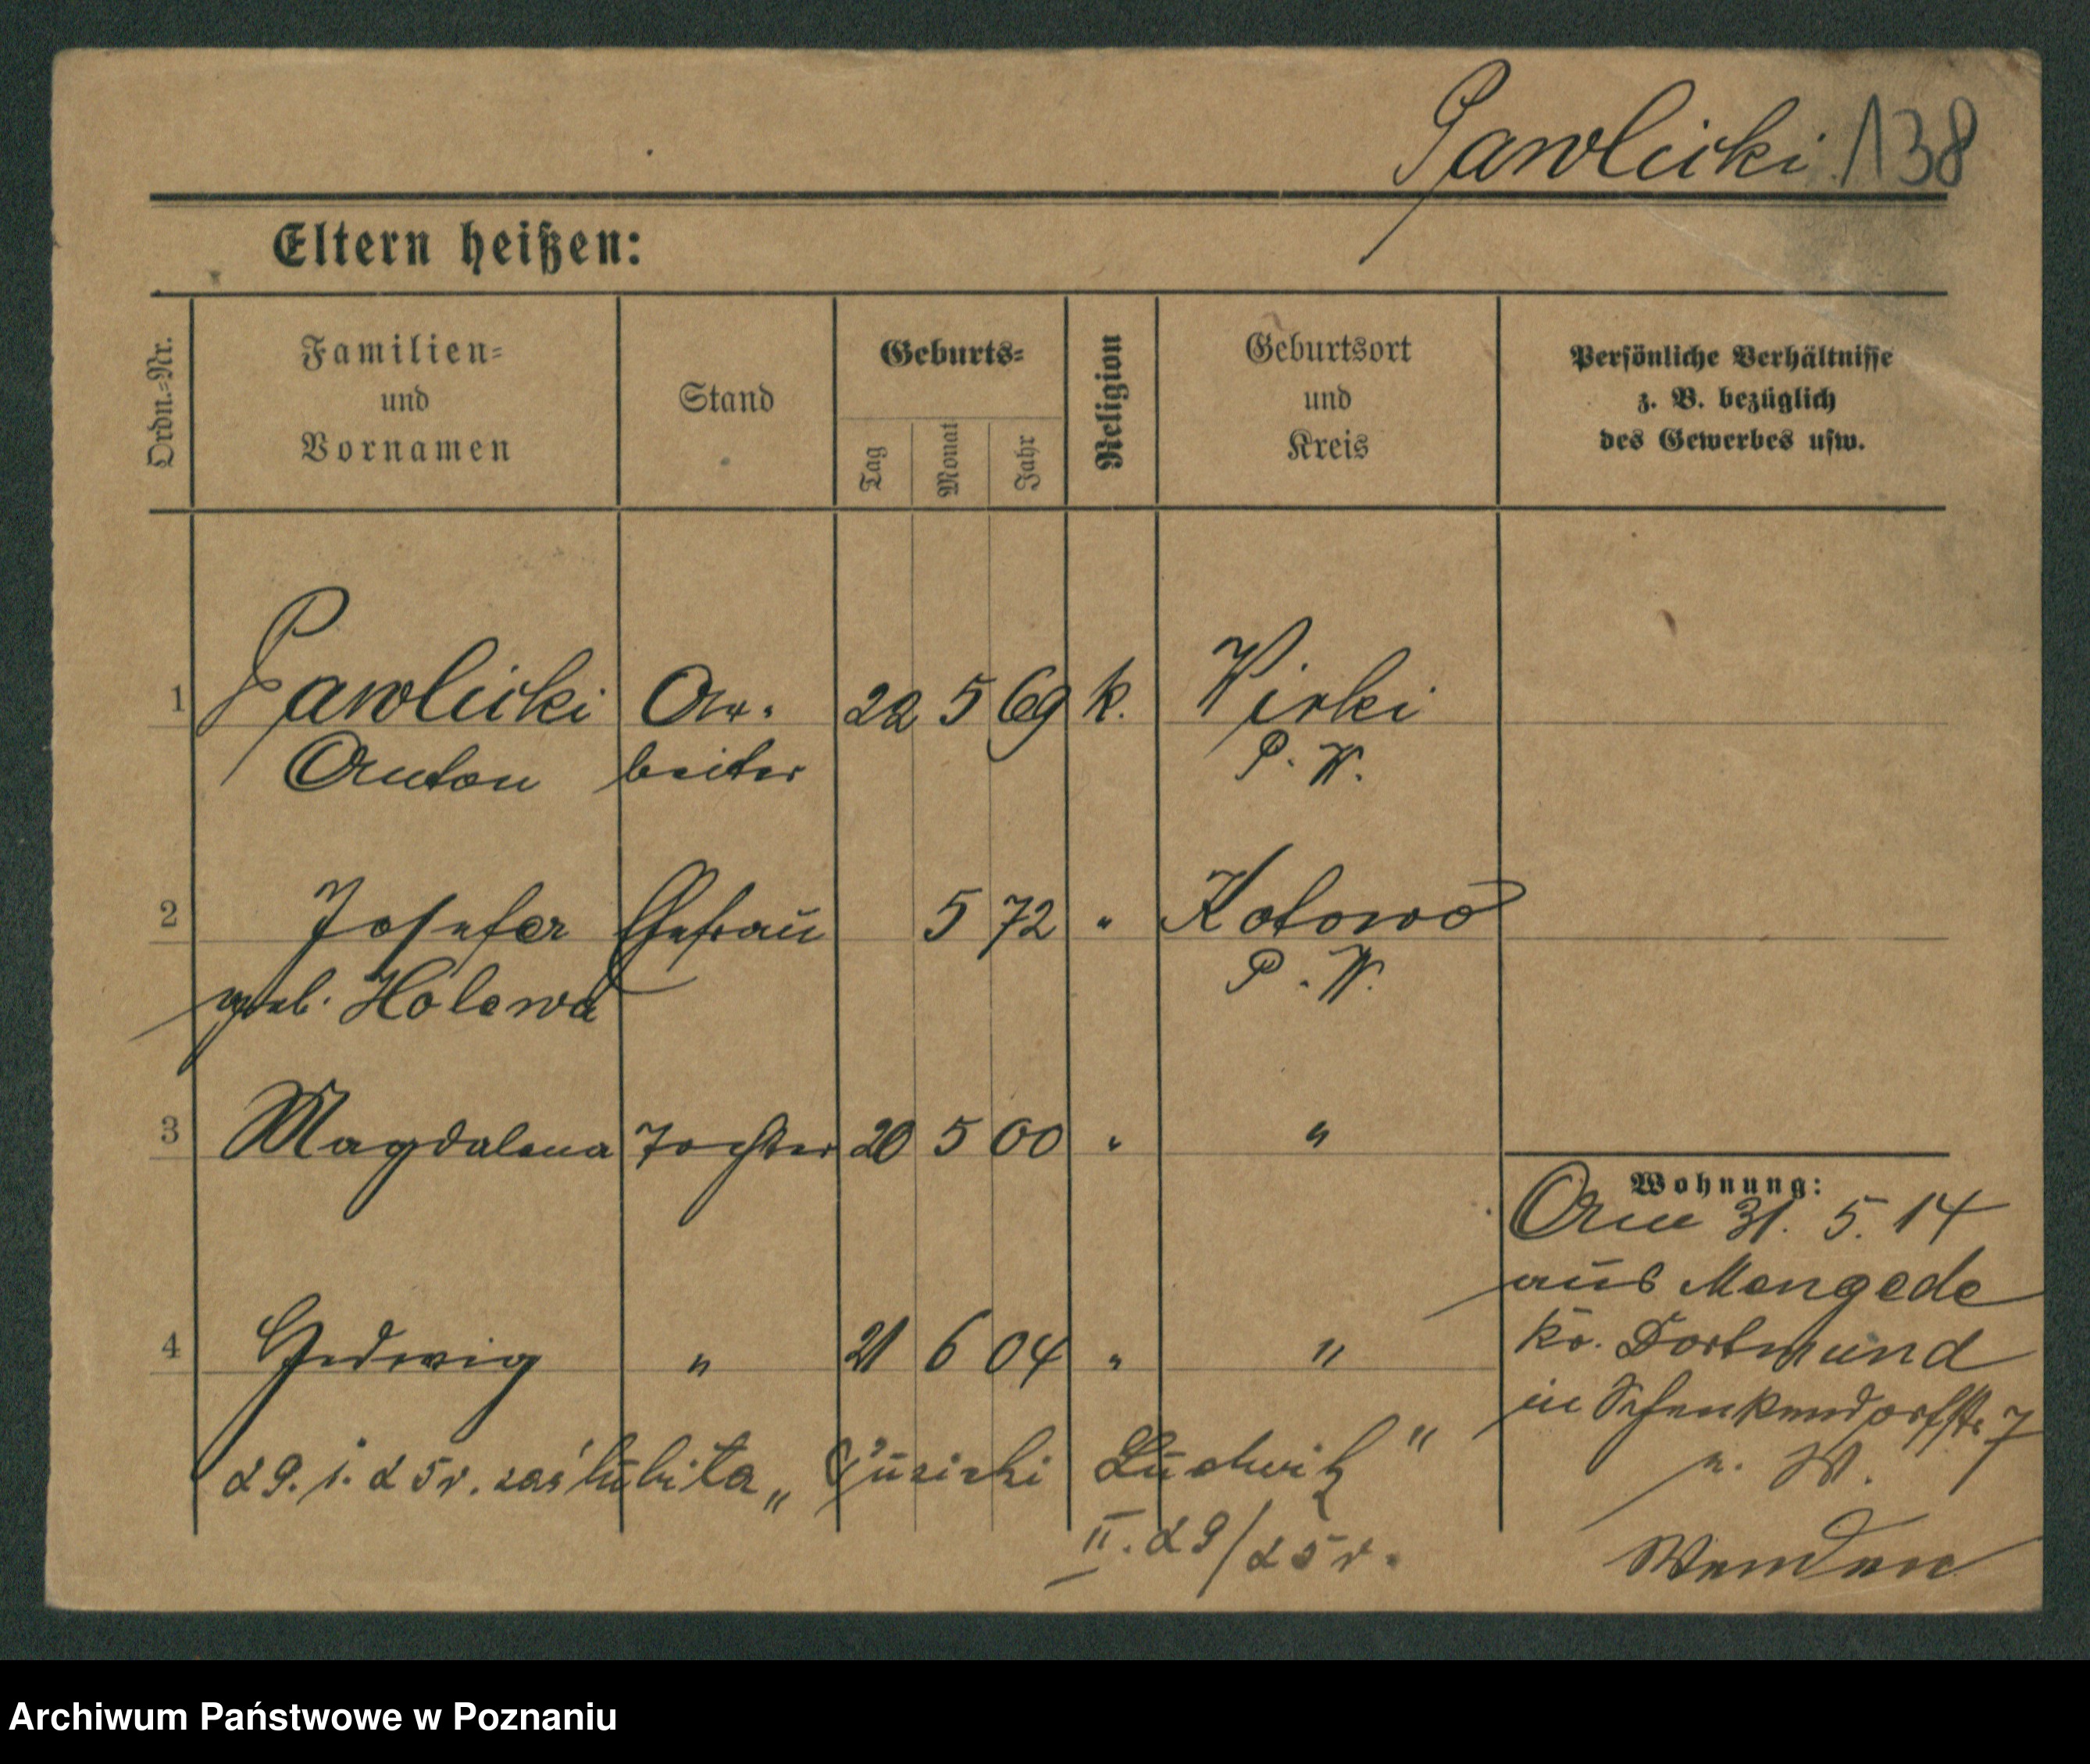 Pawlicki 138
Eltern heißen:
Ordn.=Nr.
Familien=
und
Vornamen
Stand
Geburts=
Tag
Monat
Jahr
Religion
Geburtsort
und
Kreis
Persönliche Verhältnisse
z. B. bezüglich
des Gewerbes usw.
1 Pawlicki Ar- 22 5 69 k. Wirki
Anton beiter P. W.
2 Josefa Ehefrau 5 72 " Kotowo
geb. Holewa P. W.
3 Magdalena Tochter 20 5 00 " "
Wohnung:
Am 31. 5. 14
aus Mengede
Kr. Dortmund
in Schenkendorfstr. 7
4 Hedwig " 21 6 04 " "
29. i. 25 r. zaślubiła " Ludwik "
II. 29/25 r.